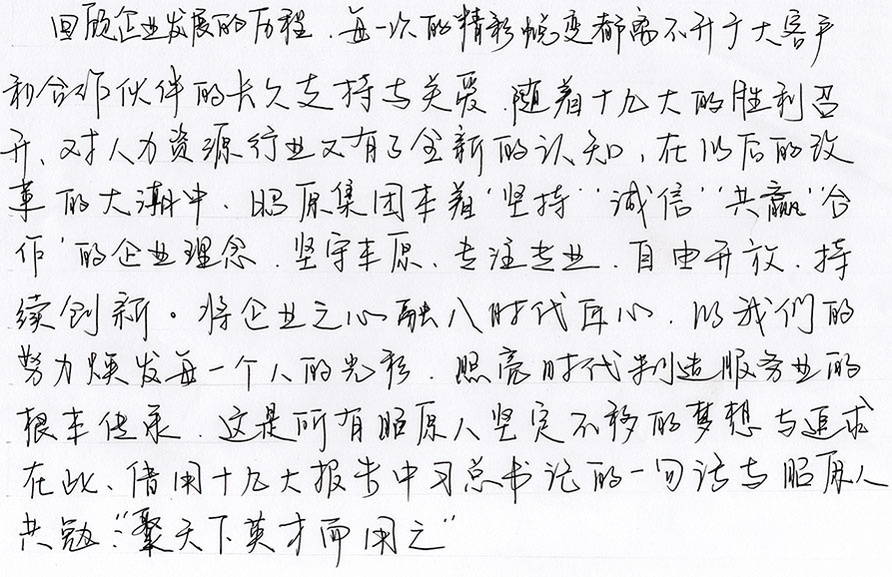 回顾企业发展的历程，每一次的精彩蜕变都离不开于大客户
和合作伙伴的长久支持与关爱，随着十九大的胜利召
开、对人力资源行业又有了全新的认知，在以后的改
革的大潮中，昭原集团本着“坚持”“诚信”“共赢”“合
作”的企业理念，坚守本愿、专注专业、自由开放、持
续创新。将企业之心融入时代匠心，以我们的
努力焕发每一个人的光彩，照亮时代制造服务业的
根本传承，这是所有昭原人坚定不移的梦想与追求
在此、借用十九大报告中习总书记的一句话与昭原人
共勉：“聚天下英才而用之”